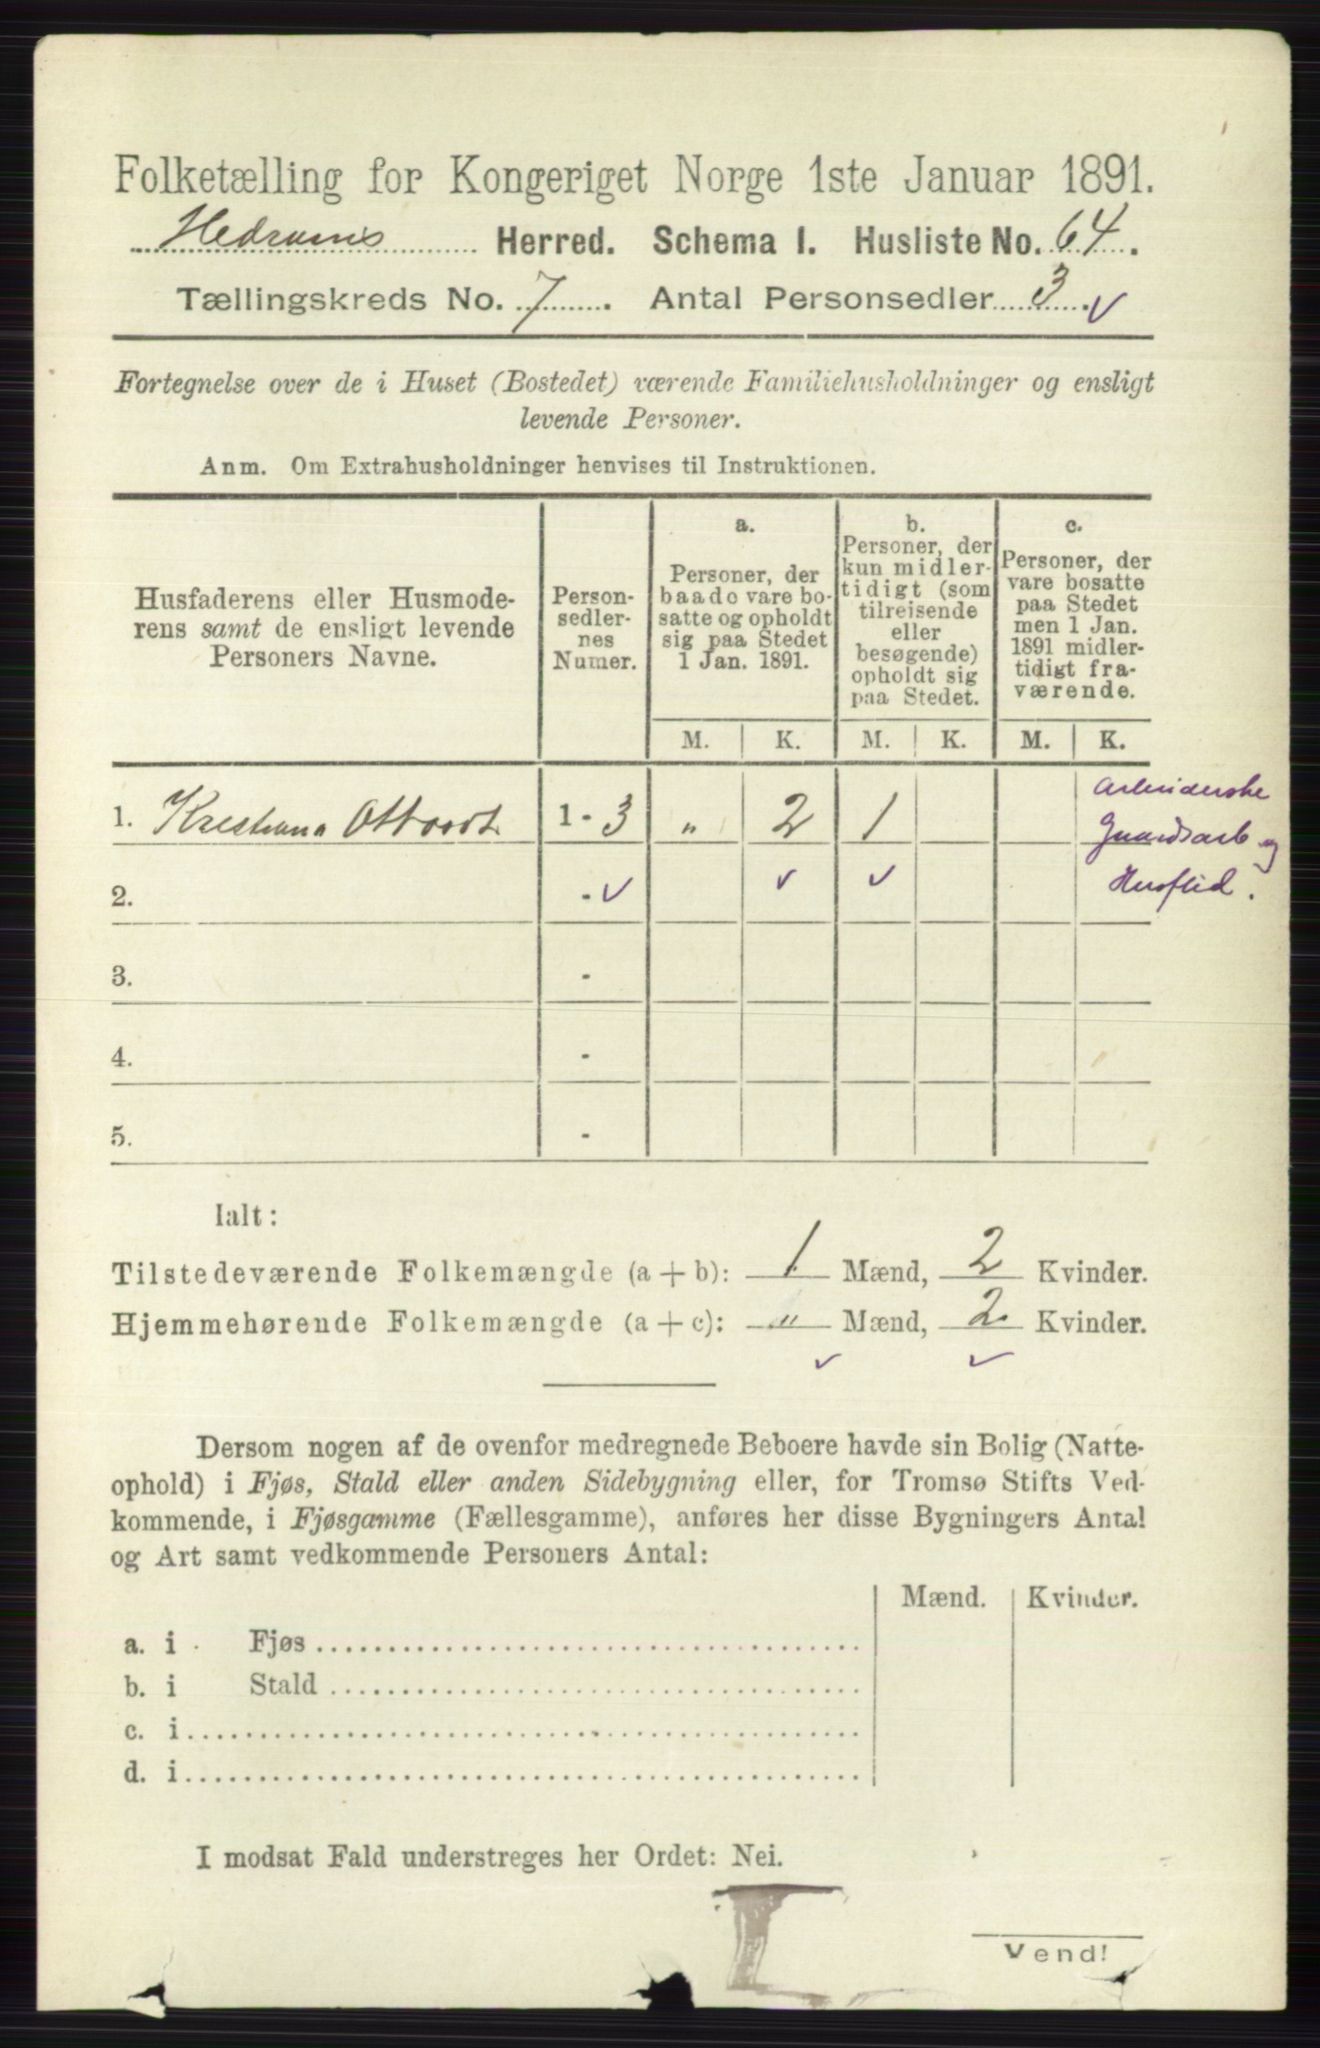 Folketælling for Kongeriget Norge 1ste Januar 1891.
Hedrums Herred. Schema I. Husliste No. 64.
Tællingskreds No. 7. Antal Personsedler 3 ✓
Fortegnelse over de i Huset (Bostedet) værende Familiehusholdninger og ensligt
levende Personer.
Anm. Om Extrahusholdninger henvises til Instruktionen.
Husfaderens eller Husmode-
rens samt de ensligt levende
Personers Navne.
Person-
sedler-
nes
Numer.
a.
Personer, der
baade vare bo-
satte og opholdt
sig paa Stedet
1 Jan. 1891.
b.
Personer, der
kun midler-
tidigt (som
tilreisende
eller
besøgende)
opholdt sig
paa Stedet.
c.
Personer, der
vare bosatte
paa Stedet
men 1 Jan.
1891 midler-
tidigt fra-
værende.
M. K. M. K. M. K.
1. 1 - 3 „ 2 1
Arbeiderske
Gaardsarb og
Husflid.
2. - ✓ ✓ ✓
3. -
4. -
5. -
Ialt:
Tilstedeværende Folkemængde (a + b): 1 Mænd, 2 Kvinder.
Hjemmehørende Folkemængde (a + c): „ Mænd, 2 Kvinder.
✓ ✓
Dersom nogen af de ovenfor medregnede Beboere havde sin Bolig (Natte-
ophold) i Fjøs, Stald eller anden Sidebygning eller, for Tromsø Stifts Ved-
kommende, i Fjøsgamme (Fællesgamme), anføres her disse Bygningers Antal
og Art samt vedkommende Personers Antal:
Mænd. Kvinder.
a. i Fjøs
b. i Stald
c. i
d. i
I modsat Fald understreges her Ordet: Nei.
Vend!